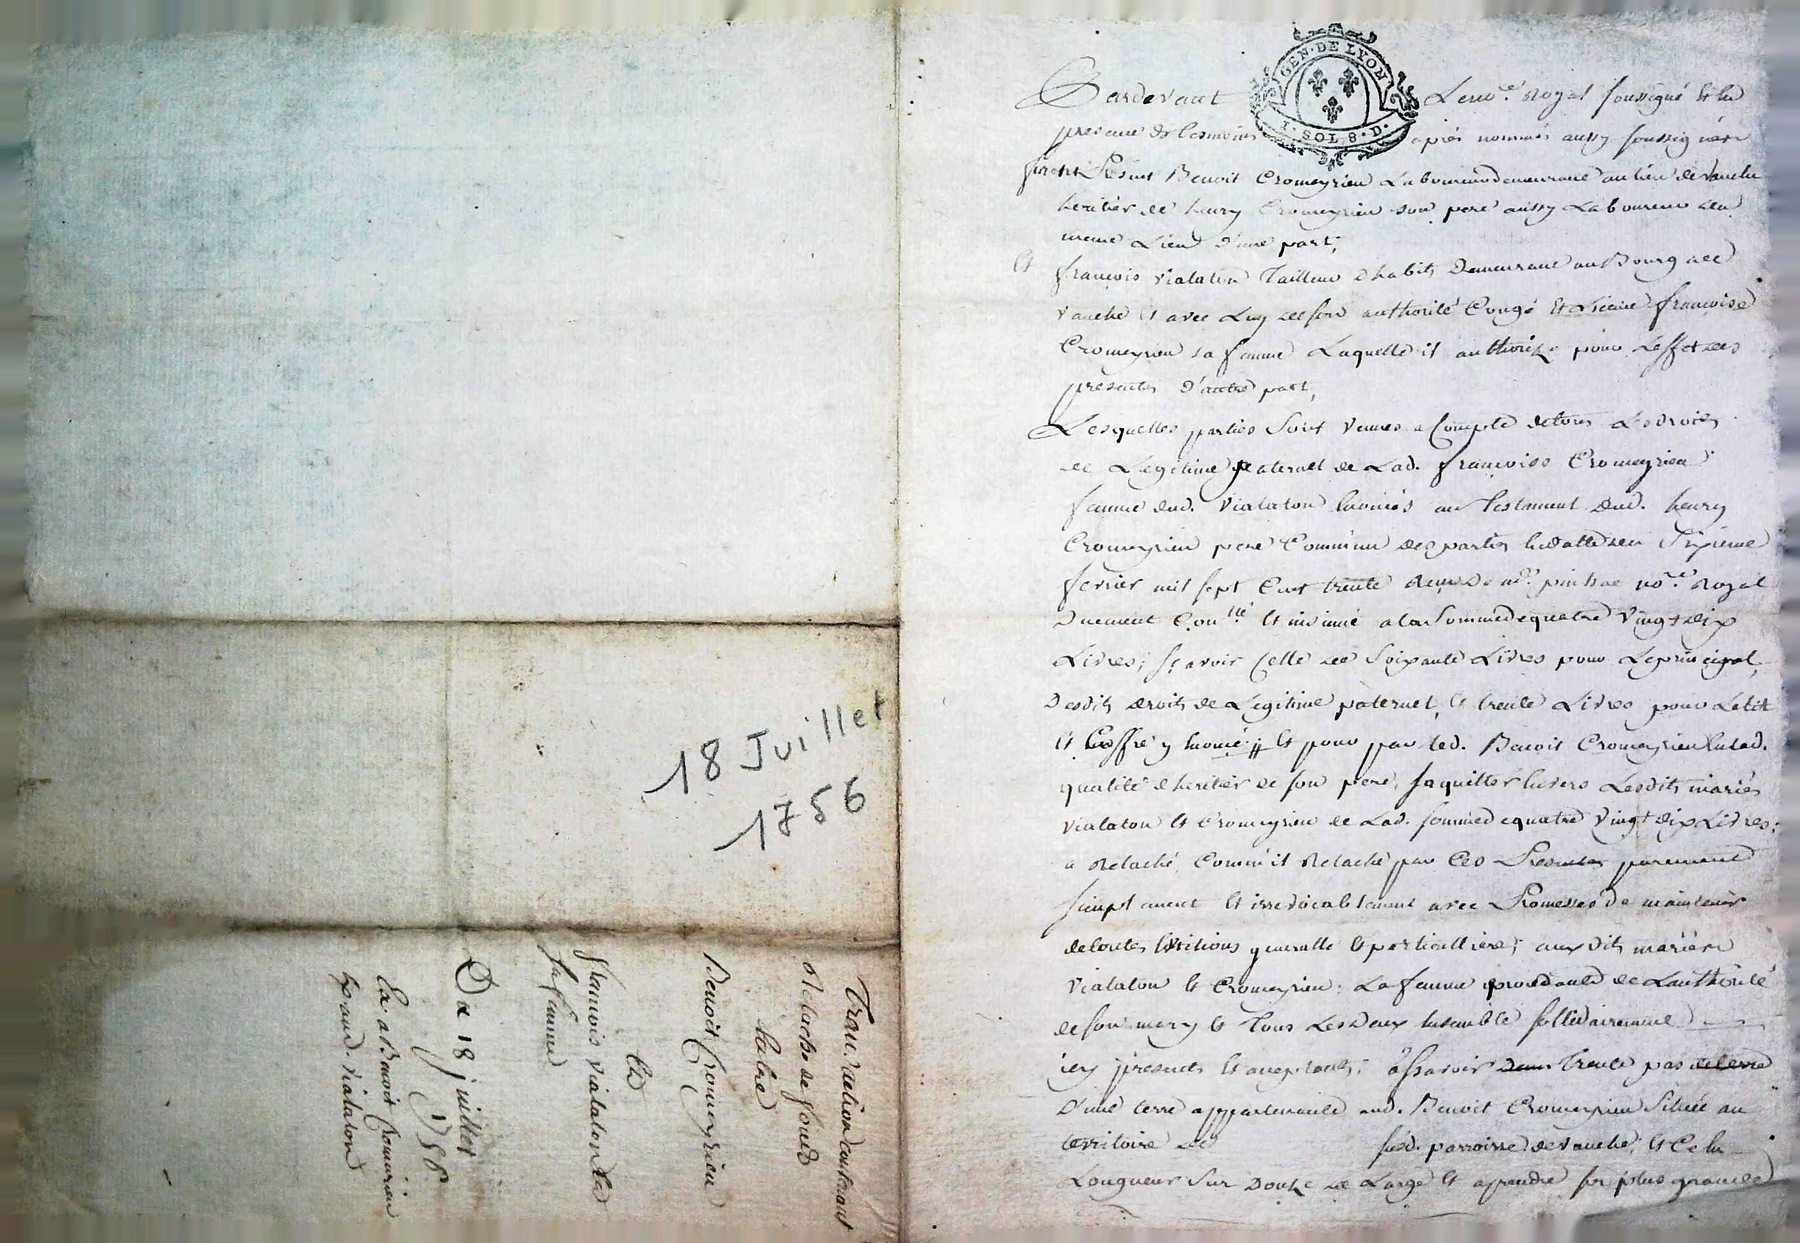 18 Juillet
1756
Transaction contenant
relache de fonds
Entre
Benoit Cromeyrieu
Et
francois vialaton Et
sa femme
Du 18 juillet
1756
Ex. a Benoit Cromeirieu
GEN · DE LYON
I · SOL 8 · D ·
Pardevant Le no.re Royal soussigné Et En
presence des temoins apres nommés aussy soussignés
furent Présent Benoit Cromeyrieu Laboureur demeurant au lieu de
heritier de henry Cromeyrieu son pere aussy Laboureur du
meme Lieu d'une part;
Et francois vialaton Tailleur d'habits Demeurant au Bourg de
vauche Et avec Luy de son authorité Congé Et Licence francoise
Cromeyrieu sa femme Laquelle il authorize pour L'effet des
presentes d'autre part,
Lesquelles parties sont venues a Compte de tous Les droits
de Legitime paternel de Lad. francoise Cromeyrieu
femme dud. vialaton Enoncés au Testament dud. henry
Cromeyrieu pere Commun des parties En datte du sixieme
fevrier mil sept Cent trente Reçu De me. no.re Royal
Duement Con.llé Et insinué a la Somme de quatre Vingt Dix
Livres; sçavoir Celle de soixante Livres pour Le principal
Desdits droits de Legitime paternel, Et trente Livres pour Le Lit
Et Coffre y Enoncé; Et pour par led. Benoit Cromeyrieu En lad.
qualité d'heritier de son pere, s'aquitter Envers Lesdits mariés
vialaton Et Cromeyrieu de Lad. somme de quatre Vingt dix Livres;
a Relaché Comm'il Relache par Ces Presentes purement
simplement Et irrevocablement avec Promesses de maintenir
de toutes Evictions generalle Et particulliere; auxdits mariés
vialaton Et Cromeyrieu; La femme procedante de L'authorité
de son mary Et Tous Les Deux Ensemble sollidairement
icy presents Et acceptants; a sçavoir trente pas de terre
D'une terre appartenante aud. Benoit Cromeyrieu Située au
territoire de susd. parroisse de vauche, Et Ce En
Longueur sur Douze de Large Et a prendre sur plus grande